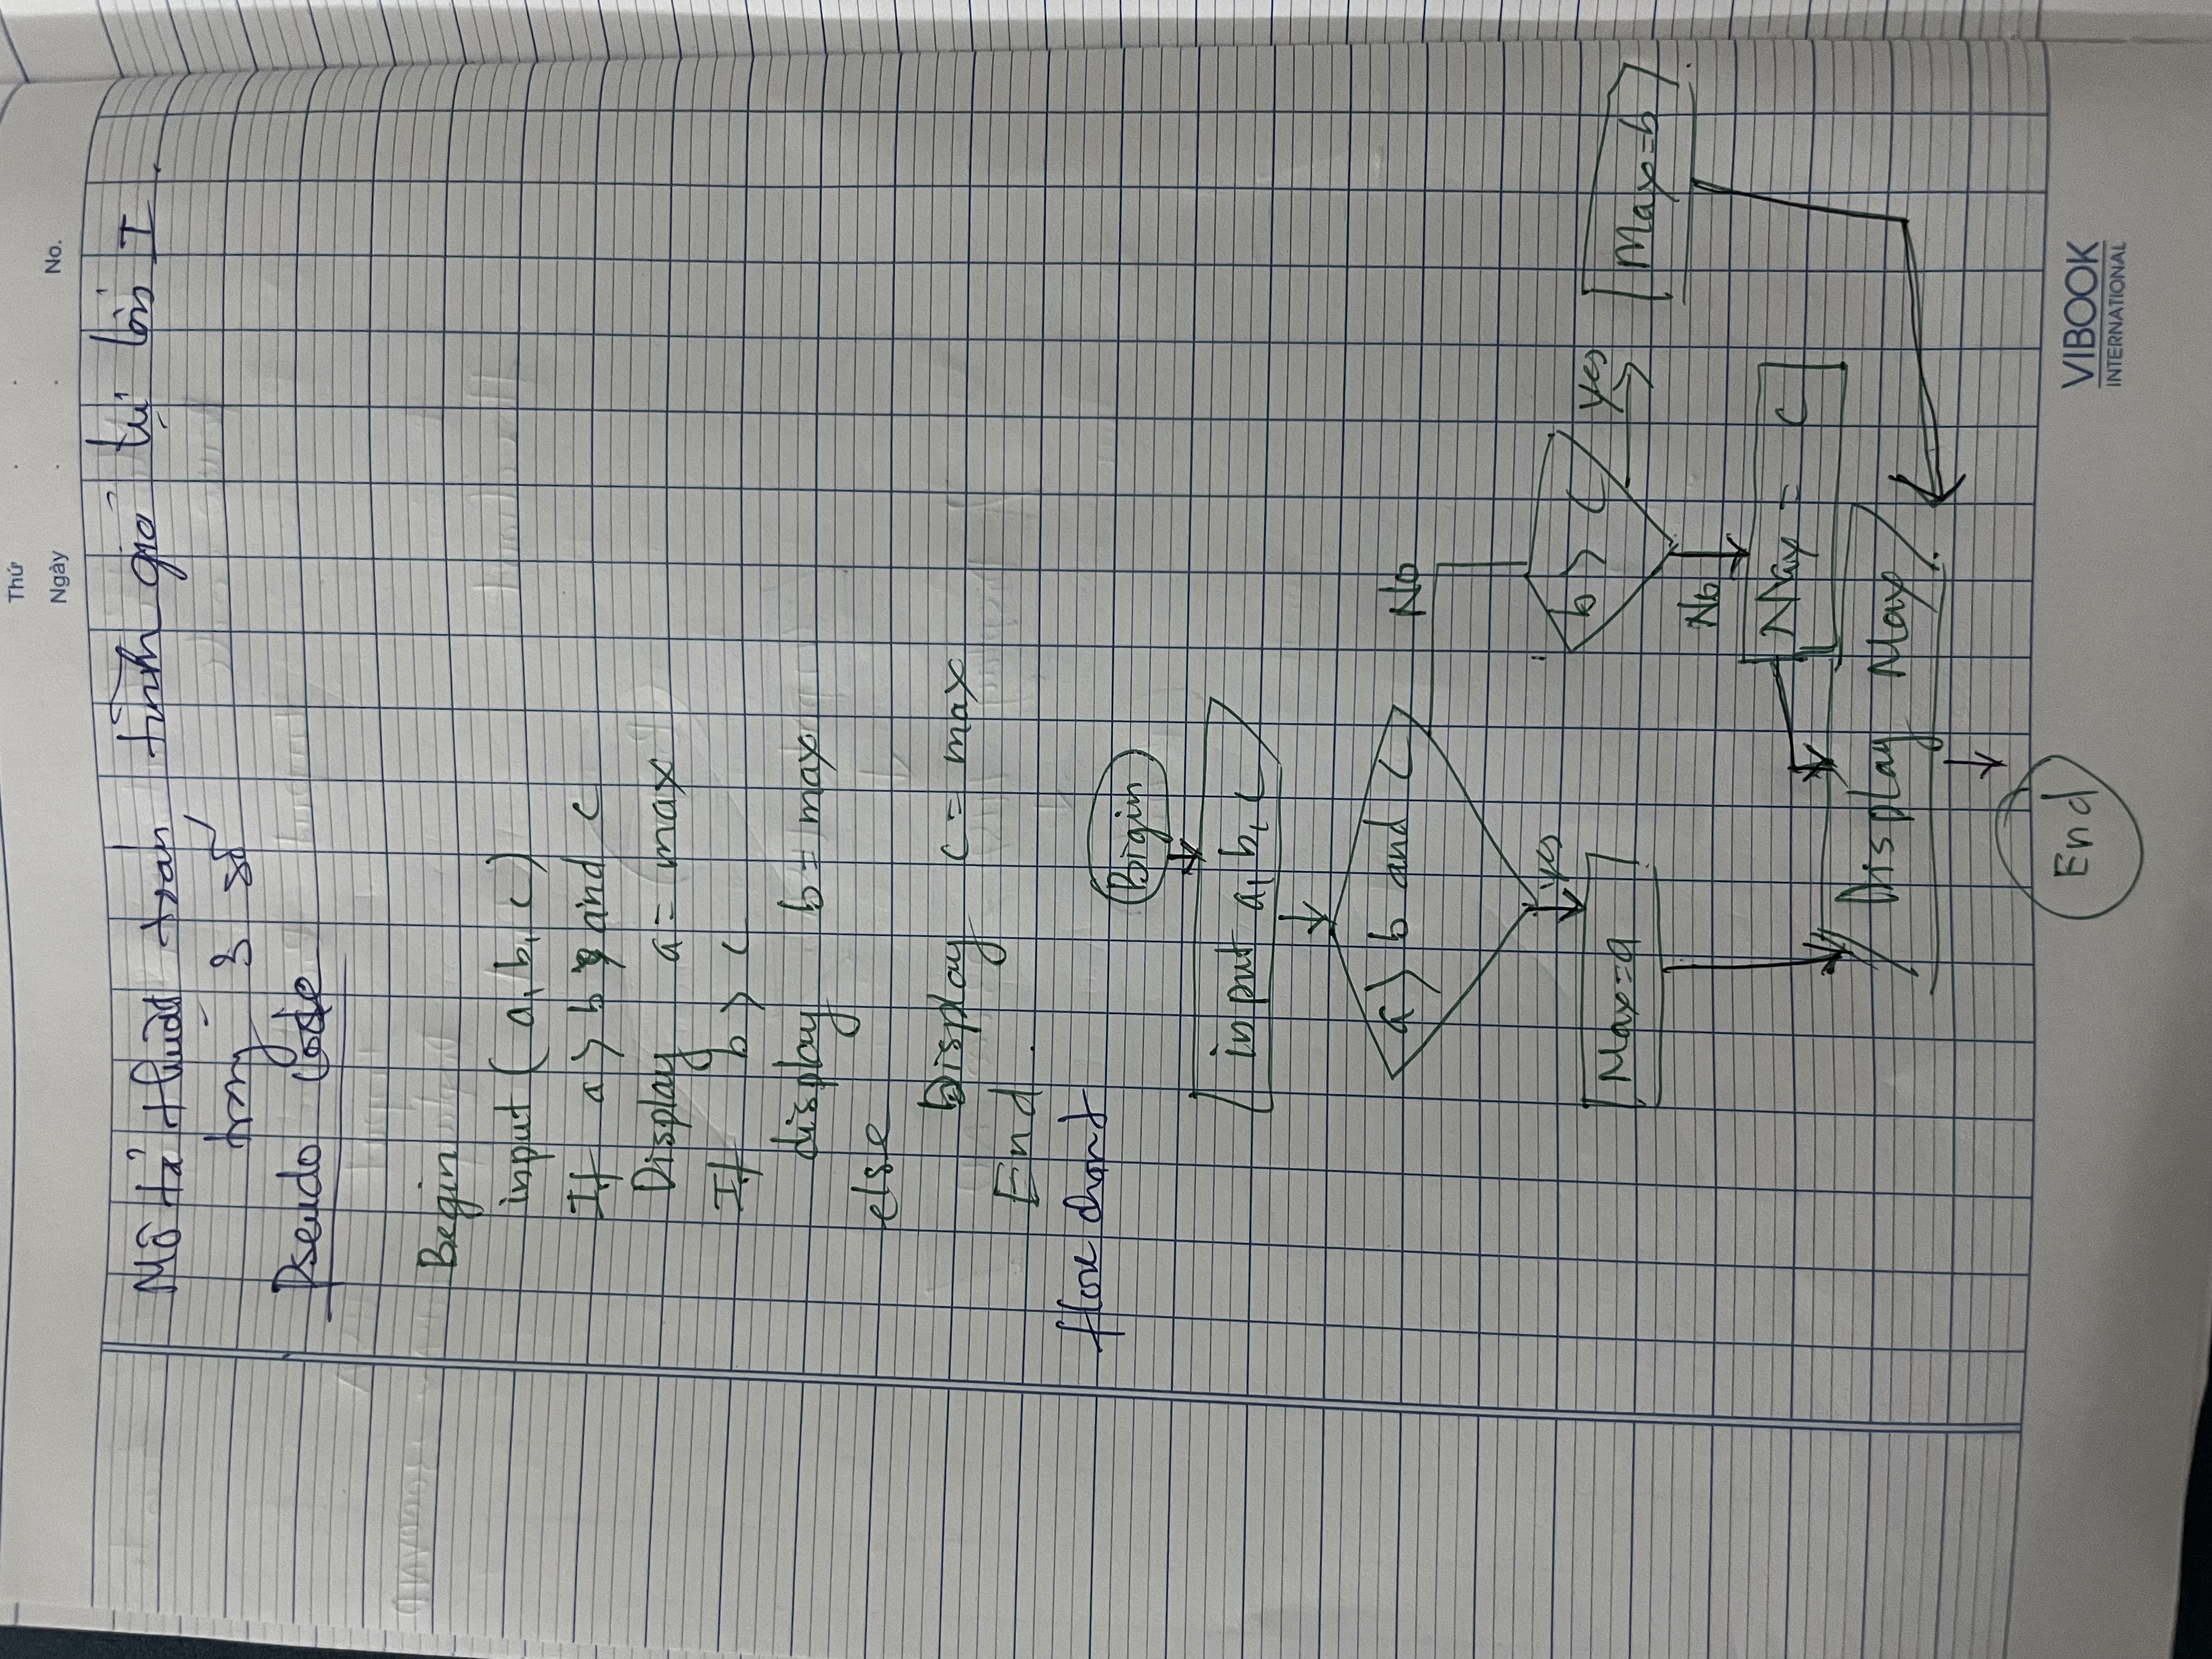 Thứ
Ngày
No.
Mô tả thuật toan tính giá trị lớn I
trong 3 số
Pseudo code
Begin
input (a, b, c)
If a > b and c
Display a = max
If b > c
display b = max
else
Display c = max
End.
flow chart
Bigin
input a, b, c
a > b and c
No
yes
b > c
yes
Max=a
Max=b
No
Max = c
Display Max
End
VIBOOK
INTERNATIONAL